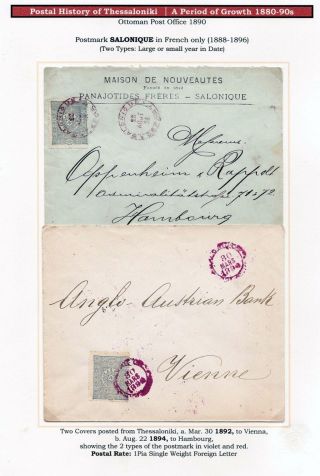 Postal History of Thessaloniki | A Period of Growth 1880-90s
Ottoman Post Office 1890
Postmark SALONIQUE in French only (1888-1896)
(Two Types: Large or small year in Date)
MAISON DE NOUVEAUTÉS
PANAJOTIDES FRÈRES - SALONIQUE
Messieurs
Oppenheim & Rappolt
Admiralitätstraße 71-72
Hambourg
30
MARS
Anglo-Austrian Bank
Vienne
30
MARS
Two Covers posted from Thessaloniki, a. Mar. 30 1892, to Vienna,
b. Aug. 22 1894, to Hambourg,
showing the 2 types of the postmark in violet and red.
Postal Rate: 1Pia Single Weight Foreign Letter